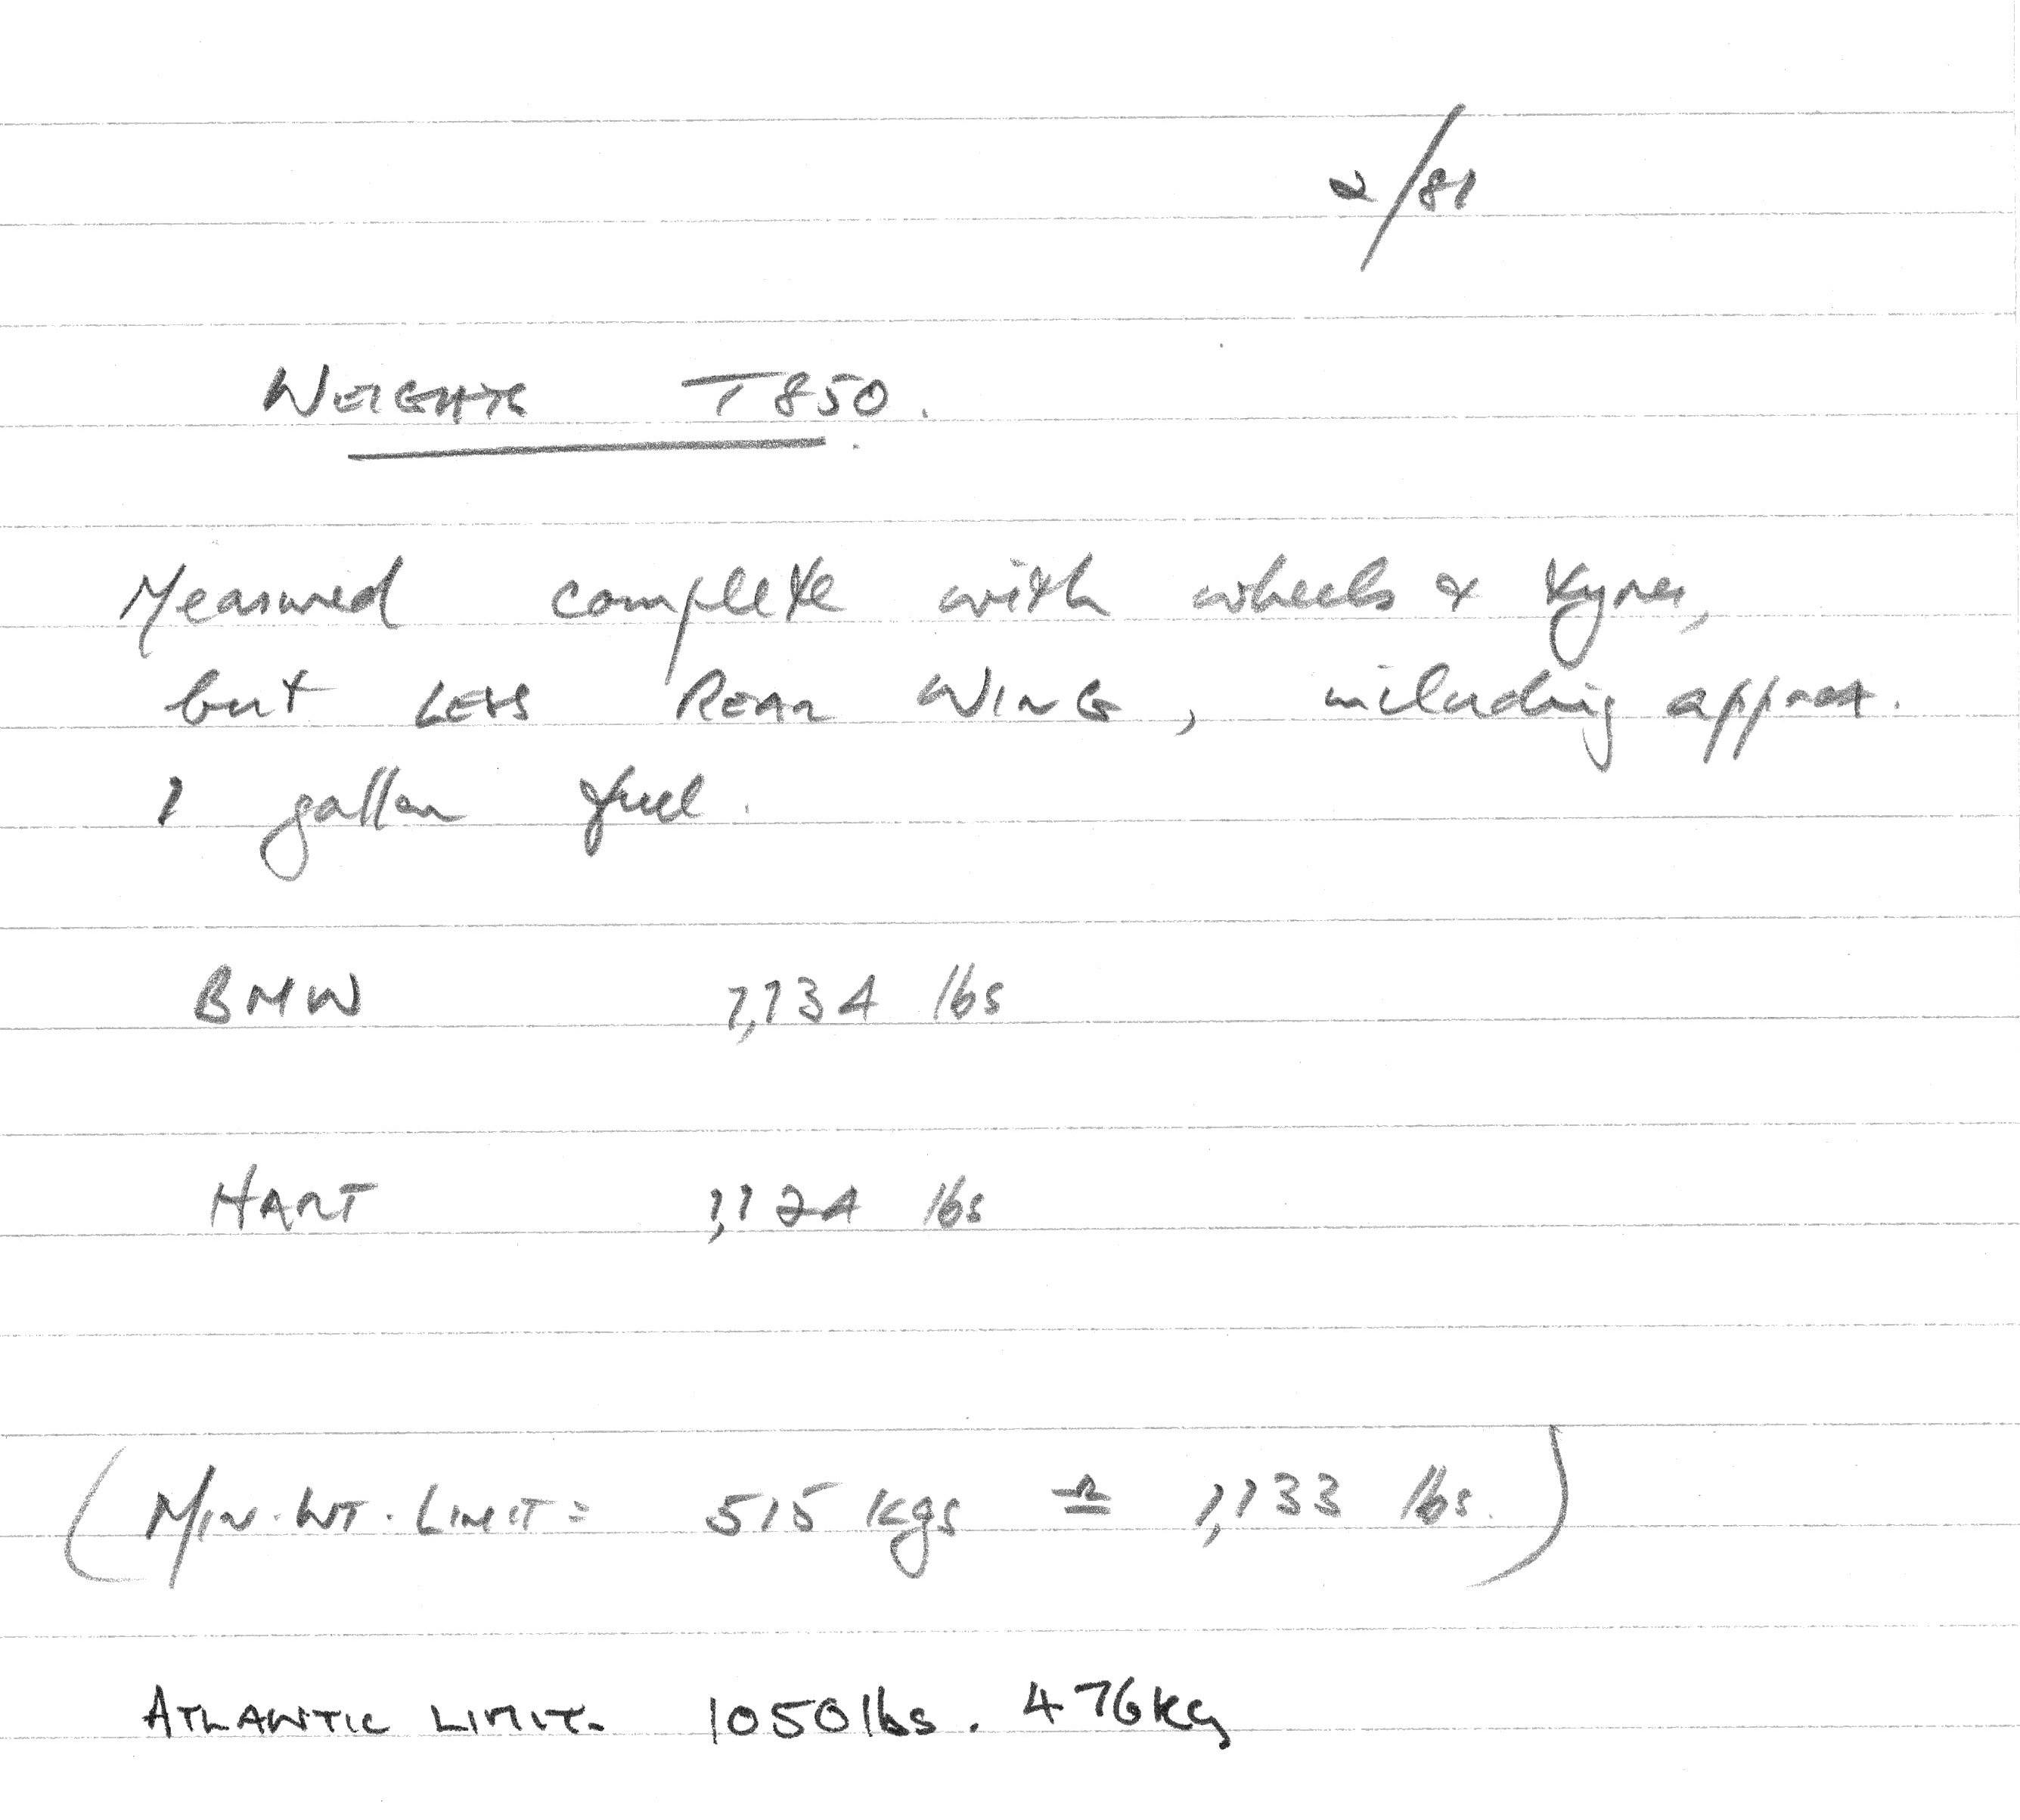 2/81
WEIGHTS T850.
Measured complete with wheels & tyres,
but LESS REAR WING, including approx.
1 gallon fuel.
BMW 1,134 lbs
HART 1,124 lbs
(MIN. WT. LIMIT = 515 kgs ≏ 1,133 lbs.)
ATLANTIC LIMIT. 1050lbs. 476kg